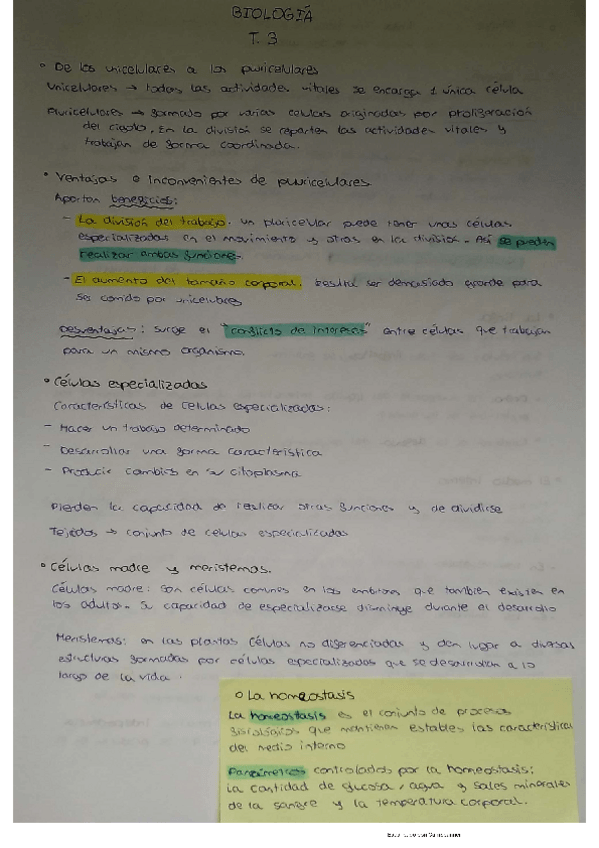 BIOLOGIA
T. 3
• De los unicelulares a los pluricelulares
Unicelulares → todas las actividades vitales se encarga 1 única célula
Pluricelulares → formado por varias celulas originadas por proliferación
del cigoto. En la división se reparten las actividades vitales y
trabajan de forma coordinada.
• Ventajas e inconvenientes de pluricelulares
Aportan beneficios:
- La división del trabajo. un pluricelular puede tener unas células
especializadas en el movimiento y otras en la división. Así se pueden
realizar ambas funciones.
- El aumento del tamaño corporal. Resulta ser demasiado grande para
ser comido por unicelulares
Desventajas: surge el "conflicto de intereses" entre células que trabajan
para un mismo organismo.
• Células especializadas
Características de celulas especializadas:
- Hacer un trabajo determinado
- Desarrollar una forma característica
- Producir cambios en su citoplasma
Pierden la capacidad de realizar otras funciones y de dividirse
Tejidos → conjunto de celulas especializadas
• Células madre y meristemos.
Células madre: son células comunes en los embriones que también existen en
los adultos. Su capacidad de especializarse disminuye durante el desarrollo
Meristemos: en las plantas células no diferenciadas y dan lugar a diversas
estructuras formadas por células especializadas que se desarrollan a lo
largo de la vida.
o La homeostasis
La homeostasis es el conjunto de procesos
fisiológicos que mantienen estables las características
del medio interno
Parámetros controlados por la homeostasis:
la cantidad de glucosa, agua y sales minerales
de la sangre y la temperatura corporal.